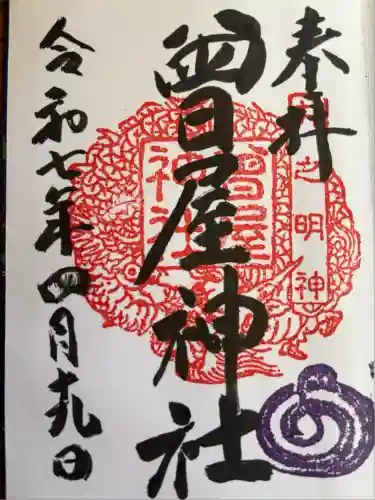 奉拝
曾屋神社
令和七年四月十九日
曾屋
神社
之明神